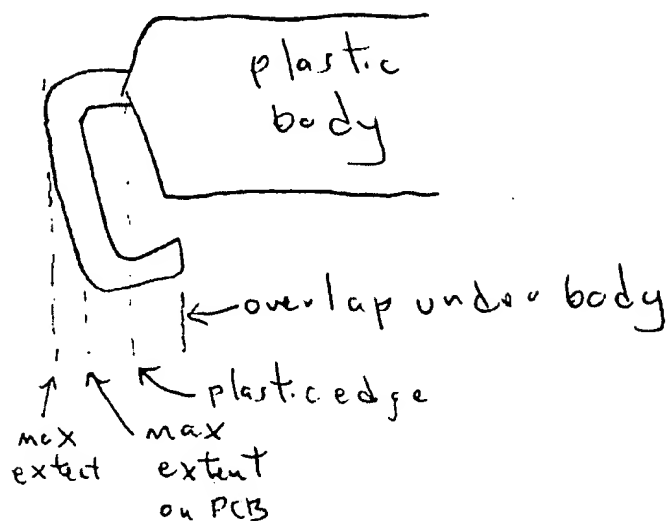 plastic
body
overlap under body
plastic edge
max
extent
max
extent
on PCB